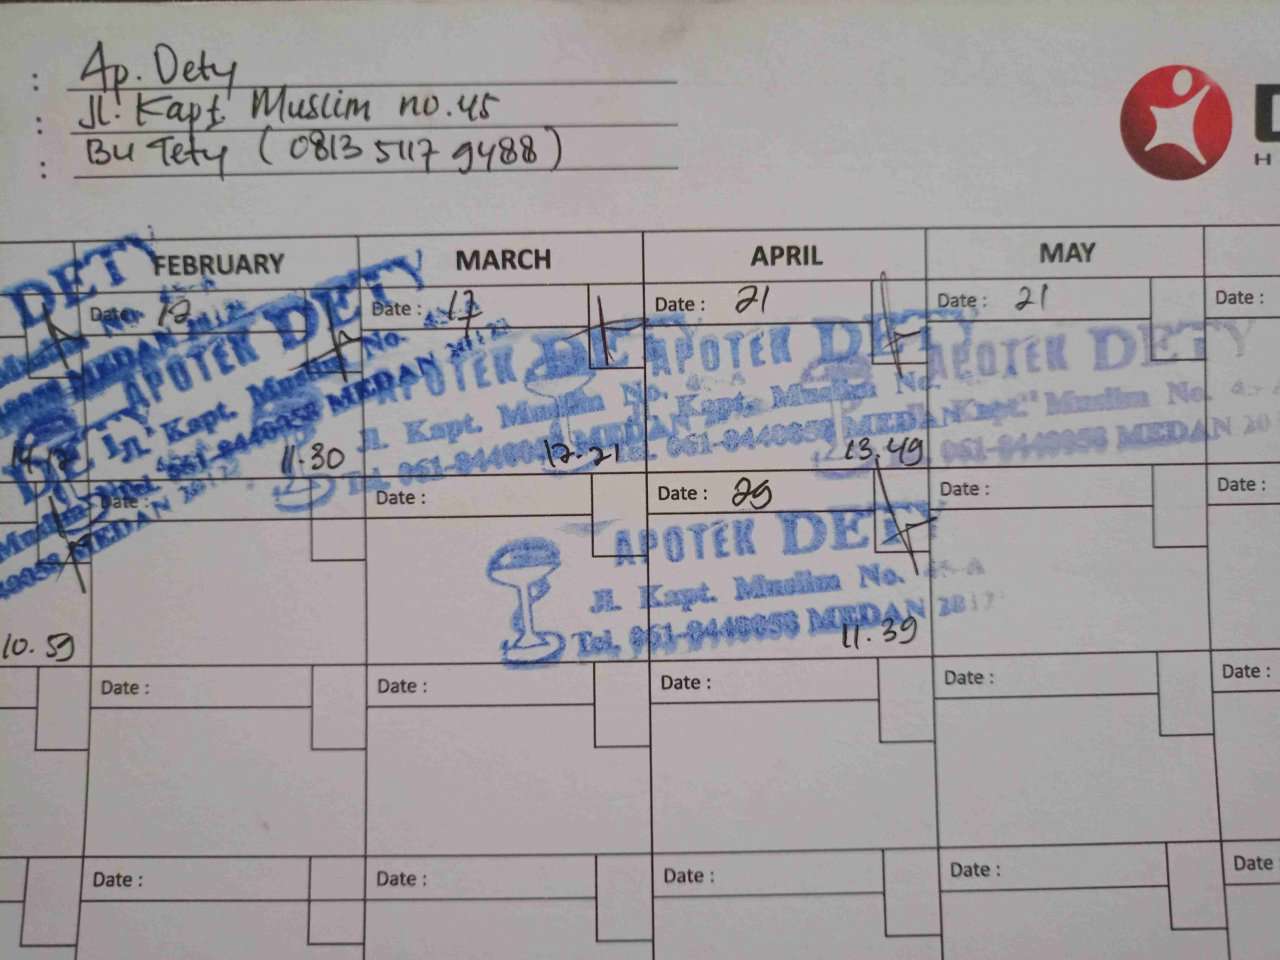 : Ap. Dety
: Jl. Kapt. Muslim no. 45
: Bu Tety (0813 5117 9488)
D
H
FEBRUARY MARCH APRIL MAY
Date : 12 Date : 17 Date : 21 Date : 21 Date :
DETY
MEDAN
APOTEK DETY
Jl. Kapt. Muslim No. 45-A
Tel. 061-8440058 MEDAN
APOTEK DETY
Jl. Kapt. Muslim No.
Tel. 061-8440058 MEDAN
APOTEK DETY
Kapt. Muslim No.
061-8440058 MEDAN
APOTEK DETY
Kapt. Muslim No.
061-8440058 MEDAN 20
11.30 12.21 13.49
Date : Date : Date : 29 Date : Date :
DETY
Muslim
MEDAN
APOTEK DETY
Jl. Kapt. Muslim No. 45-A
Tel. 061-8440058 MEDAN
10.59 11.39
Date : Date : Date : Date : Date :
Date : Date : Date : Date : Date